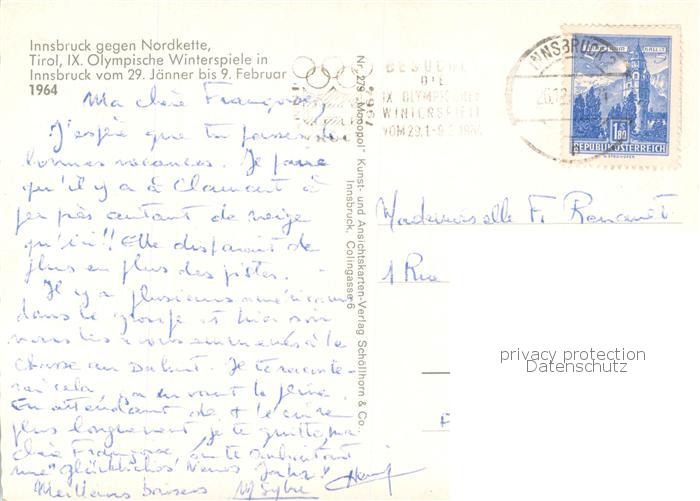 Innsbruck gegen Nordkette,
Tirol, IX. Olympische Winterspiele in
Innsbruck vom 29. Jänner bis 9. Februar
1964
Ma chère Françoise
J'espère que tu passes de
bonnes vacances. Je
qu'il y a à Clamart à
peu près autant de neige
qu'ici!! Elle disparaît de
plus en plus des pistes.
Il y a plusieurs américains
dans le groupe et hier soir
nous les avons emmenés à la
chasse au Dahut. Je te raconte-
rai cela, ça en vaut la peine.
En attendant de t'écrire
plus longuement, je te quitte, ma
chère Françoise, en te souhaitant
une "glückliches Neues Jahr"!
Meilleurs baisers
Nr. 279 „Monopol" Kunst- und Ansichtskarten-Verlag Schöllhorn & Co.,
Innsbruck, Colingasse 6
1964
BESUCHT
DIE
IX OLYMPISCHEN
WINTERSPIELE
VOM 29.1.-9.2.1964
INNSBRUCK 2
1.80
REPUBLIK ÖSTERREICH
Mademoiselle F.
1 Rue
privacy protection
Datenschutz